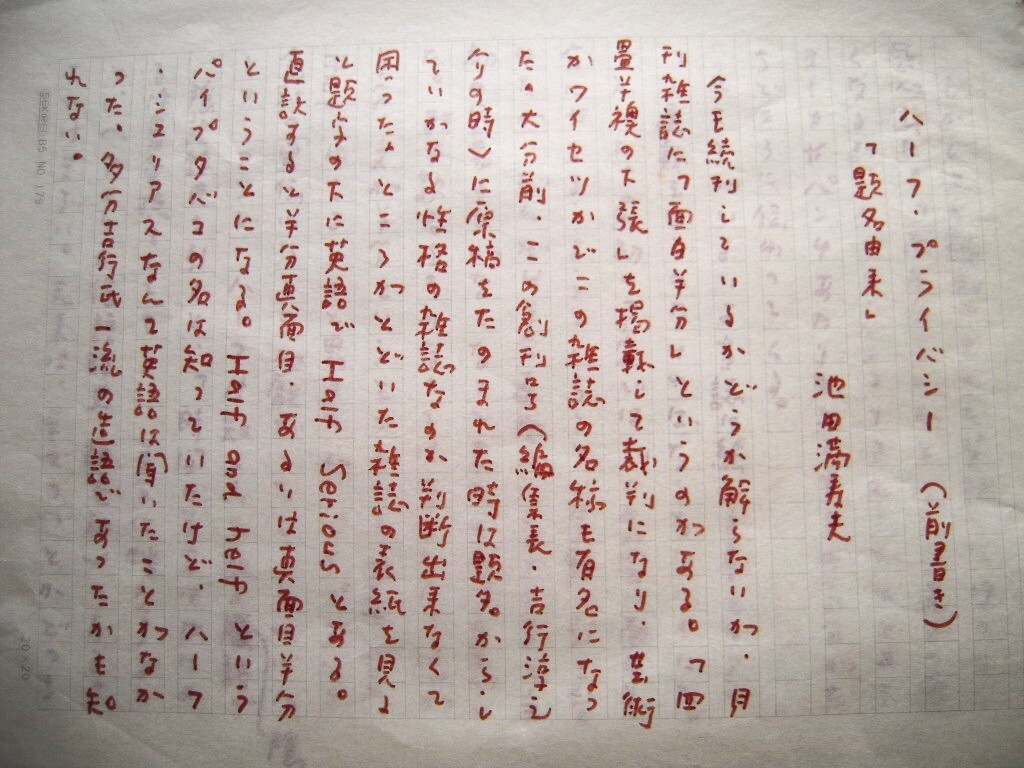 ハーフ・プライバシー（前書き）
「題名由来」
池田満寿夫
今も続刊しているかどうか解らないが、月
刊雑誌に「面白半分」というのがある。「四
畳半襖の下張」を掲載して裁判になり、芸術
かワイセツかでこの雑誌の名称も有名になっ
た。大分前、この創刊号（編集長・吉行淳之
介の時）に原稿をたのまれた時は題名からし
ていかなる性格の雑誌なのか判断出来なくて
困った。ところがとどいた雑誌の表紙を見る
と題字の下に英語で Half Serious とある。
直訳すると半分真面目、あるいは真面目半分
ということになる。 Half and half という
パイプタバコの名は知っていたけど、ハーフ
・シリアスなんて英語は聞いたことがなか
った。多分吉行氏一流の造語であったかも知
れない。
B5 NO 179
20×20